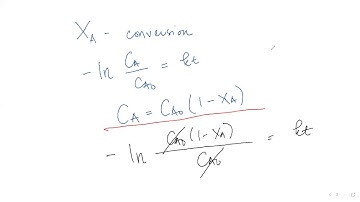 X_A - conversion
-ln C_A/C_A0 = kt
C_A = C_A0 (1 - X_A)
-ln C_A0 (1 - X_A)/C_A0 = kt